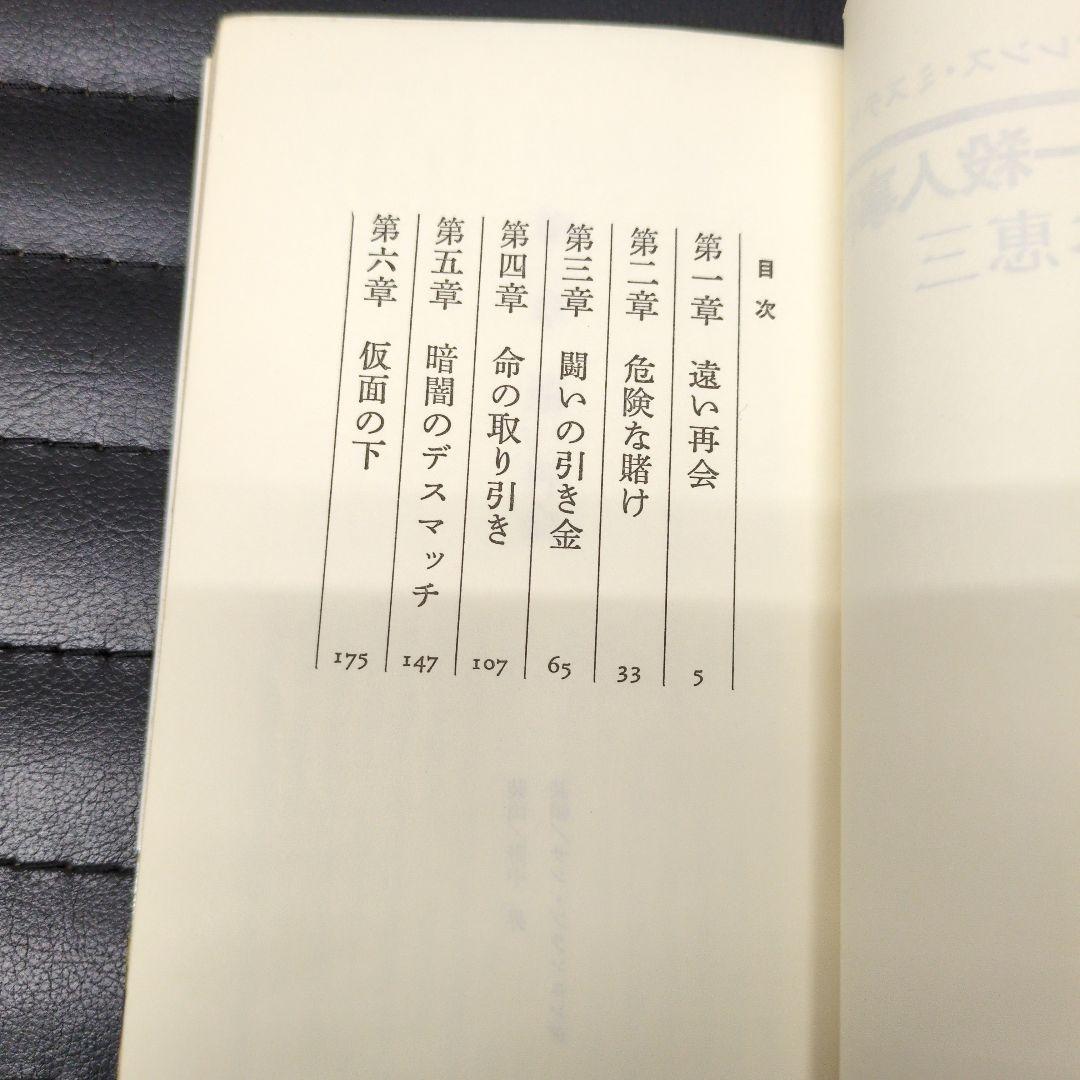 目次
第一章 遠い再会 5
第二章 危険な賭け 33
第三章 闘いの引き金 65
第四章 命の取り引き 107
第五章 暗闇のデスマッチ 147
第六章 仮面の下 175